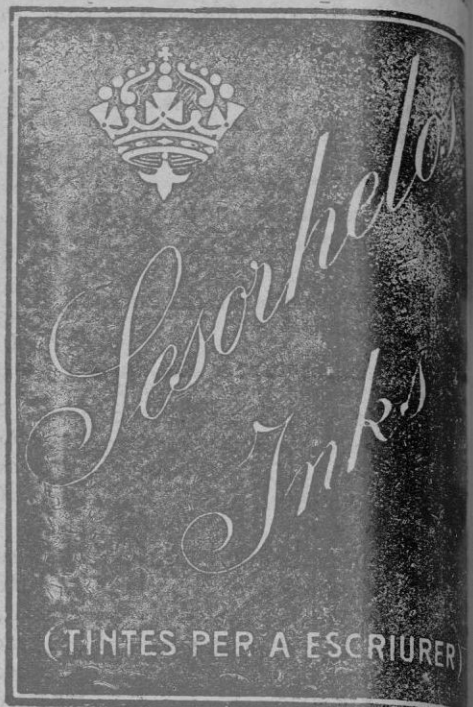 Sesorhelos
Inks
(TINTES PER A ESCRIURER)